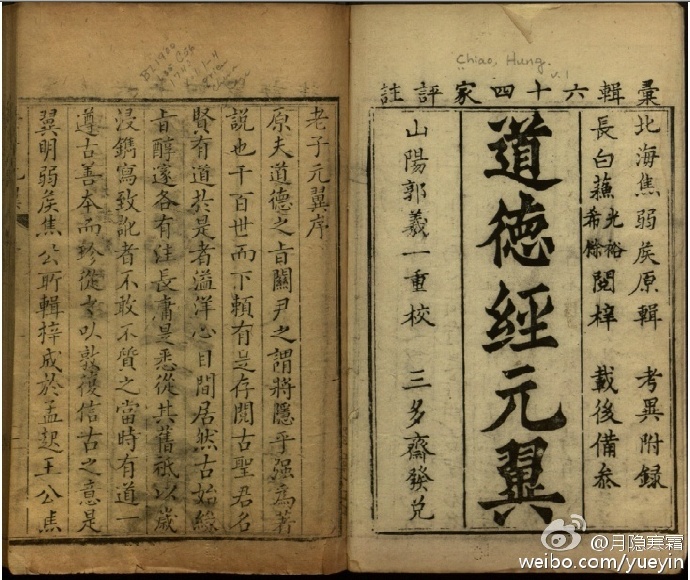 Chiao, Hung.
v.1
彙輯六十四家評註
北海焦弱矦原輯 考異附錄
長白蘓光裕希餘閱梓 載後備叅
道德經元翼
山陽郭羲一重校 三多齋發兌
BL1900
老子元翼序
原夫道德之旨關尹之謂將隱乎强為著
說也千百世而下頼有是存閱古聖君名
賢有道於是者溢洋心目間居然古始緣
旨醇邃各有注長庸是悉從其舊祇以歲
浸鐫寫致訛者不敢不質之當時有道一
遵古善本而珍從之以敦復信古之意是
翼明弱矦焦公所輯梓成於孟起王公焦
@月隐寒霜
weibo.com/yueyin